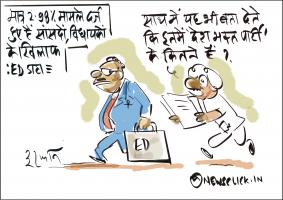 मात्र 2.98% मामले दर्ज
हुए हैं सांसदों, विधायकों
के खिलाफ
:ED डाटा
साथ में यह भी बता देते
कि इनमें
के कितने हैं ?
ED
NEWSCLICK.IN